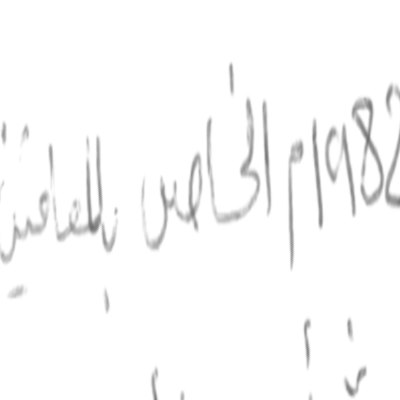 1982م الخاص بالمعاقين